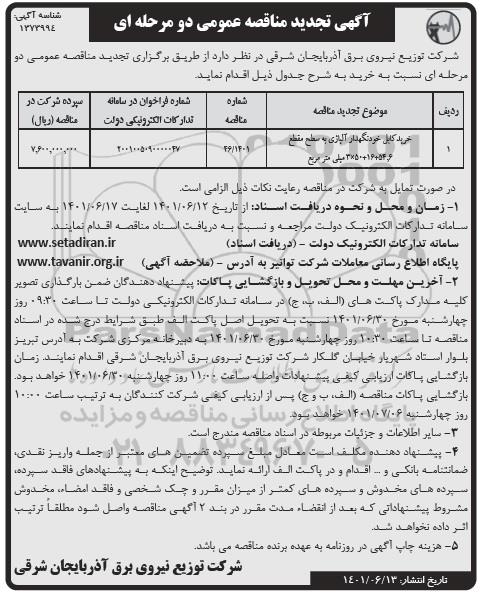 آگهی تجدید مناقصه عمومی دو مرحله ای
شناسه آگهی:
۱۳۷۳۹۹۴
شرکت توزیع نیروی برق آذربایجان شرقی در نظر دارد از طریق برگزاری تجدید مناقصه عمومی دو
مرحله ای نسبت به خرید به شرح جدول ذیل اقدام نماید.
ردیف
موضوع تجدید مناقصه
شماره مناقصه
شماره فراخوان در سامانه تدارکات الکترونیکی دولت
سپرده شرکت در مناقصه (ریال)
۱
خرید کابل خودنگهدار آلیاژی به سطح مقطع
۳×۵۰+۱۶+۵۴٫۶ میلی متر مربع
۴۶/۱۴۰۱
۲۰۰۱۰۰۵۰۹۰۰۰۰۰۴۷
۷,۶۰۰,۰۰۰,۰۰۰
در صورت تمایل به شرکت در مناقصه رعایت نکات ذیل الزامی است.
۱- زمان و محل و نحوه دریافت اسناد: از تاریخ ۱۴۰۱/۰۶/۱۲ لغایت ۱۴۰۱/۰۶/۱۷ به سایت
سامانه تدارکات الکترونیک دولت مراجعه و نسبت به دریافت اسناد مناقصه اقدام نمایند.
سامانه تدارکات الکترونیک دولت - (دریافت اسناد) www.setadiran.ir
پایگاه اطلاع رسانی معاملات شرکت توانیر به آدرس - (ملاحضه آگهی) www.tavanir.org.ir
۲- آخرین مهلت و محل تحویل و بازگشایی پاکات: پیشنهاد دهندگان ضمن بارگذاری تصویر
کلیه مدارک پاکت های (الف، ب، ج) در سامانه تدارکات الکترونیکی دولت تا ساعت ۰۹:۳۰ روز
چهارشنبه مورخ ۱۴۰۱/۰۶/۳۰ نسبت به تحویل اصل پاکت الف طبق شرایط درج شده در اسناد
مناقصه تا ساعت ۱۰:۳۰ روز چهارشنبه مورخ ۱۴۰۱/۰۶/۳۰ به دبیرخانه مرکزی شرکت به آدرس تبریز
بلوار استاد شهریار خیابان گلکار شرکت توزیع نیروی برق آذربایجان شرقی اقدام نمایند. زمان
بازگشایی پاکات ارزیابی کیفی پیشنهادات واصله ساعت ۱۱:۰۰ روز چهارشنبه ۱۴۰۱/۰۶/۳۰ خواهد بود.
بازگشایی پاکات مناقصه (الف، ب و ج) پس از ارزیابی کیفی شرکت کنندگان به ترتیب ساعت ۱۰:۰۰
روز چهارشنبه ۱۴۰۱/۰۷/۰۶ خواهد بود.
۳- سایر اطلاعات و جزئیات مربوطه در اسناد مناقصه مندرج است.
۴- پیشنهاد دهنده مکلف است معادل مبلغ سپرده تضمین های معتبر از جمله واریز نقدی،
ضمانتنامه بانکی و ... اقدام و در پاکت الف ارائه نماید. توضیح اینکه به پیشنهادهای فاقد سپرده،
سپرده های مخدوش و سپرده های کمتر از میزان مقرر و چک شخصی و فاقد امضاء، مخدوش
مشروط پیشنهاداتی که بعد از انقضاء مدت مقرر در بند ۲ آگهی مناقصه واصل شود مطلقاً ترتیب
اثر داده نخواهد شد.
۵- هزینه چاپ آگهی در روزنامه به عهده برنده مناقصه می باشد.
شرکت توزیع نیروی برق آذربایجان شرقی
تاریخ انتشار: ۱۴۰۱/۰۶/۱۳